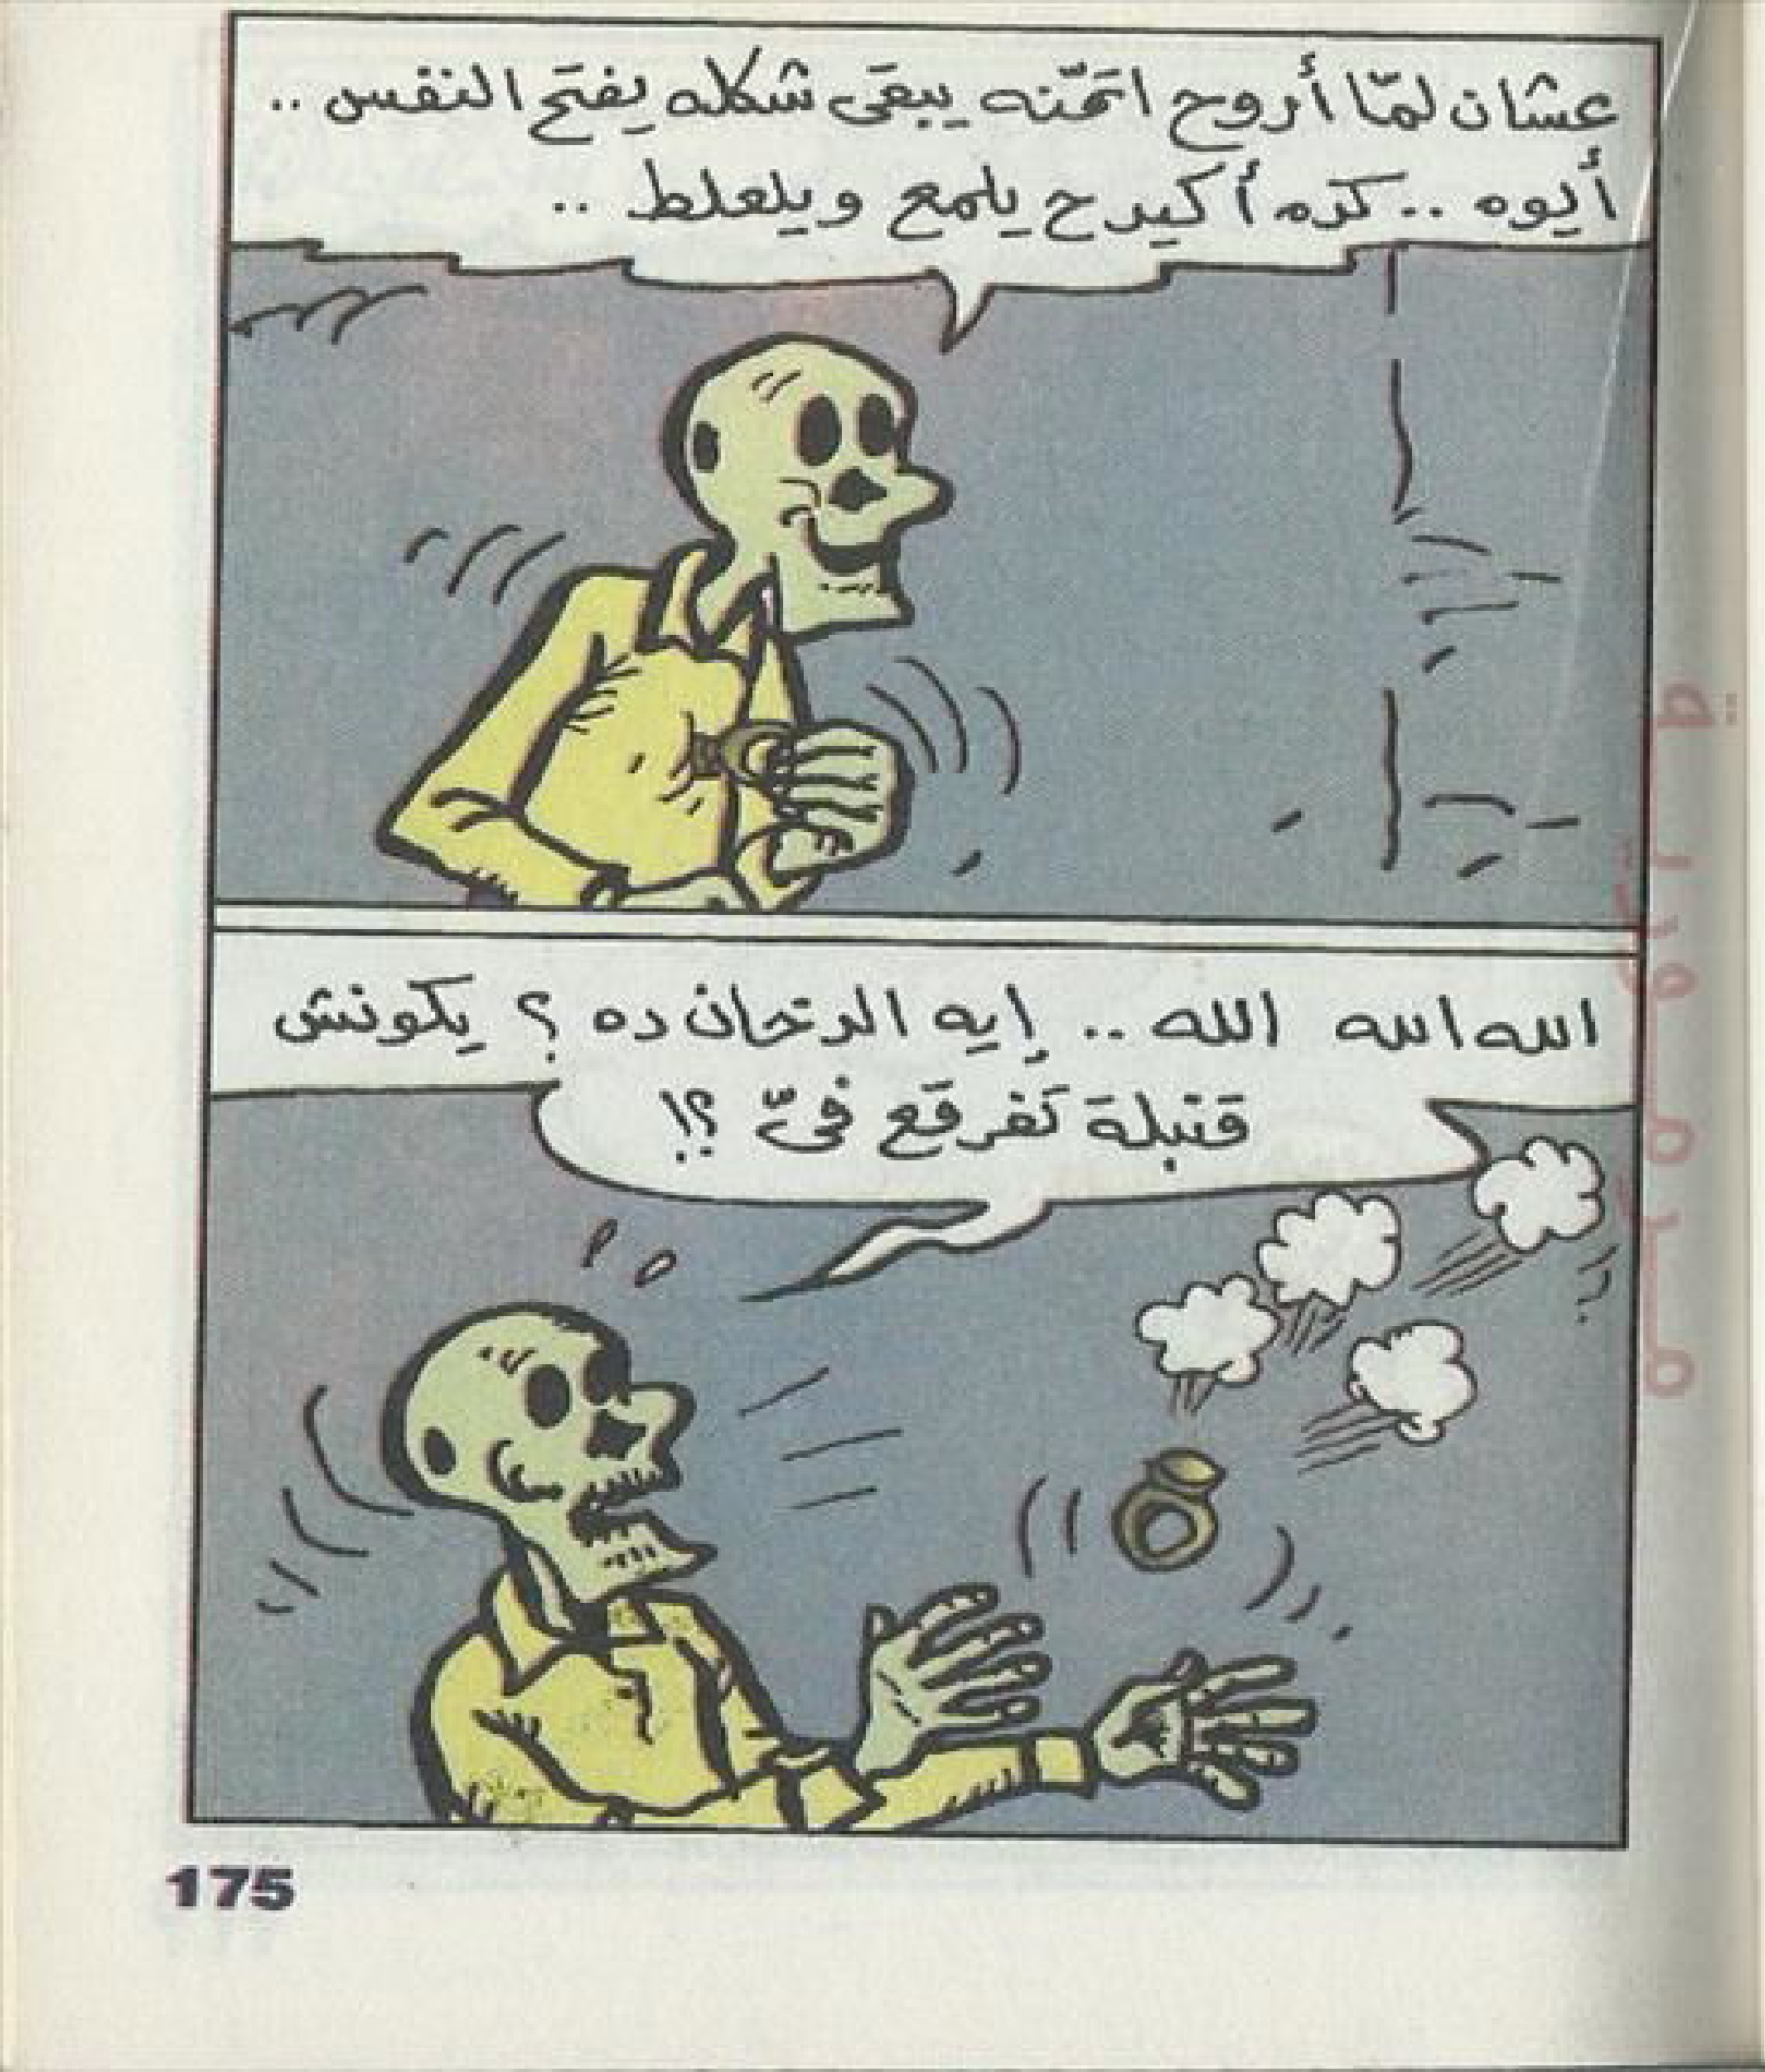 عشان لمّا أروح اتمّنه يبقى شكله يفتح النفس ..
أيوه .. كده أكيد ح يلمع ويلعلط ..
الله الله الله .. إيه الدخان ده ؟ يكونش
قنبلة تفرقع فىّ ؟!
175